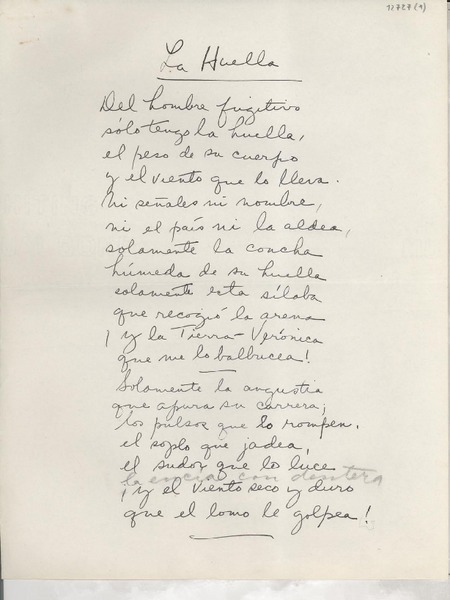 12727(1)
La Huella
Del hombre fugitivo
sólo tengo la huella,
el peso de su cuerpo
y el viento que lo lleva.
Ni señales ni nombre,
ni el país ni la aldea,
solamente la concha
húmeda de su huella
solamente esta sílaba
que recogió la arena
¡y la Tierra-Verónica
que me lo balbucea!
Solamente la angustia
que apura su carrera;
los pulsos que lo rompen.
el soplo que jadea,
el sudor que lo luce
la encía con dentera
¡y el viento seco y duro
que el lomo le golpea!